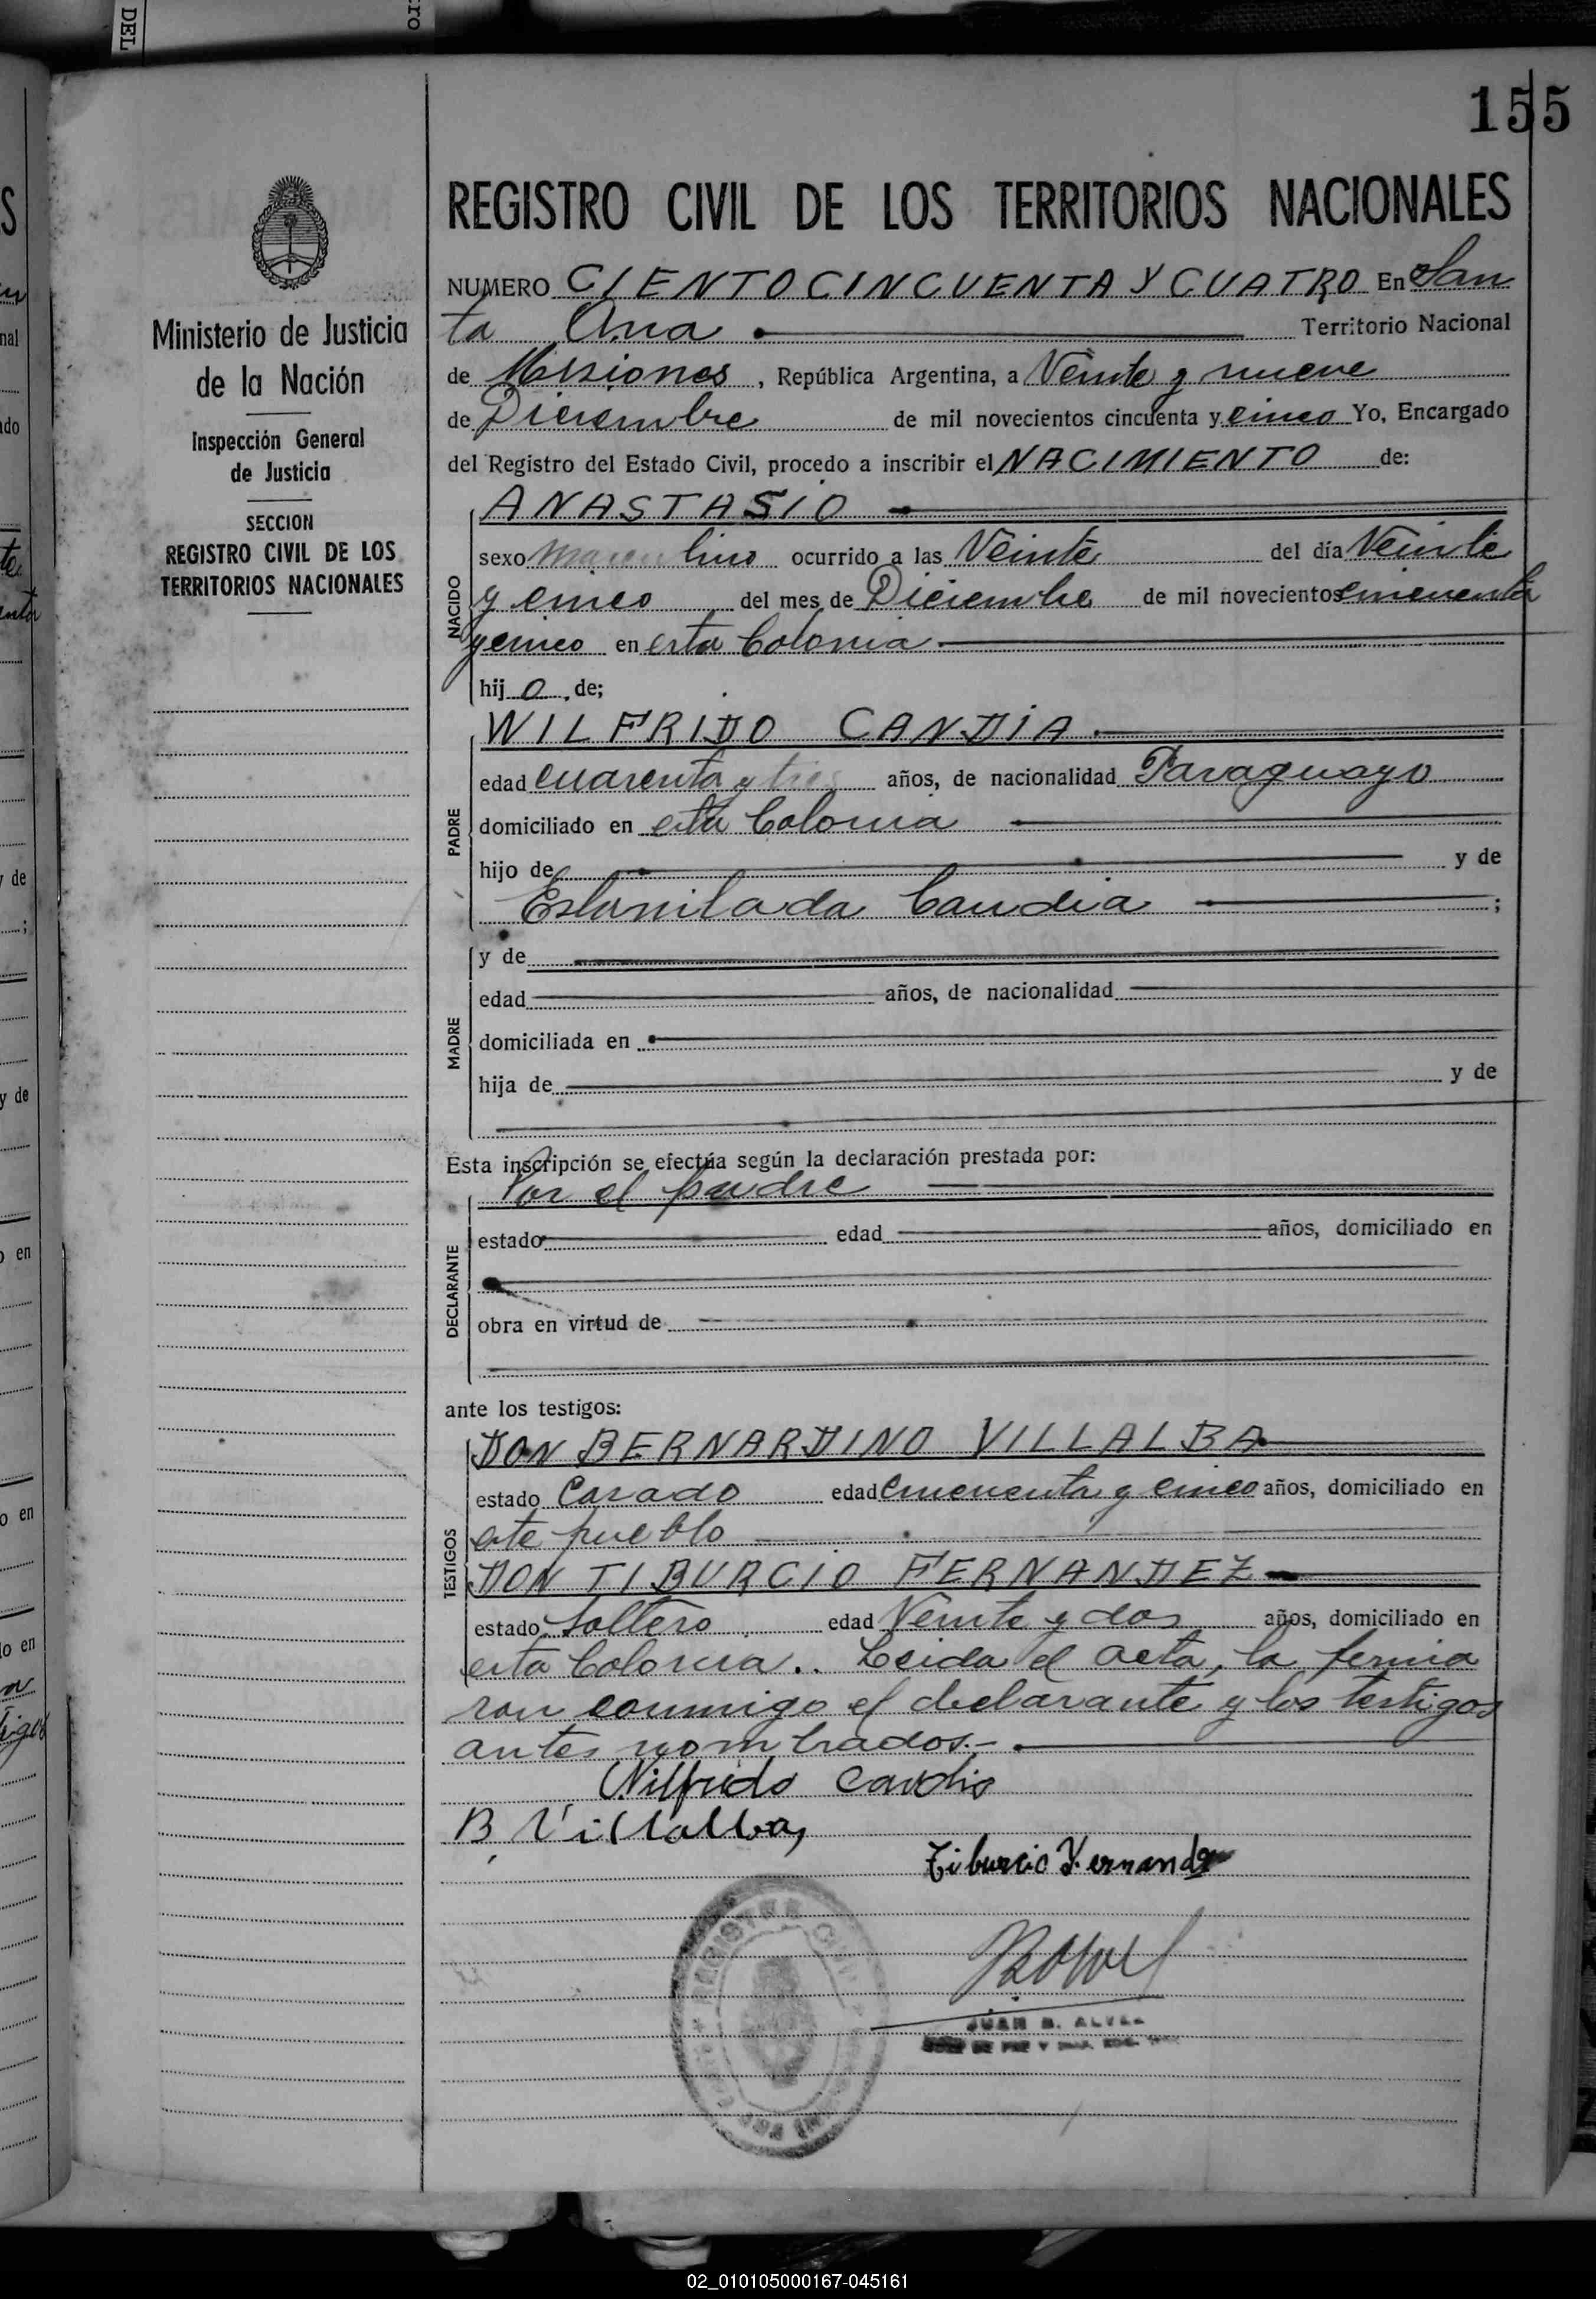 DEL
155
REGISTRO CIVIL DE LOS TERRITORIOS NACIONALES
Ministerio de Justicia
de la Nación
Inspección General
de Justicia
SECCION
REGISTRO CIVIL DE LOS
TERRITORIOS NACIONALES
NUMERO CIENTO CINCUENTA Y CUATRO En San
ta Ana Territorio Nacional
de Misiones, República Argentina, a Veinte y nueve
de Diciembre de mil novecientos cincuenta y cinco Yo, Encargado
del Registro del Estado Civil, procedo a inscribir el NACIMIENTO de:
NACIDO
ANASTASIO
sexo masculino ocurrido a las Veinte del día Veinte
y cinco del mes de Diciembre de mil novecientos cincuenta
y cinco en esta Colonia
hijo de;
PADRE
WILFRIDO CANDIA
edad cuarenta y tres años, de nacionalidad Paraguayo
domiciliado en esta Colonia
hijo de y de
Estanilada Candia ;
MADRE
y de
edad años, de nacionalidad
domiciliada en
hija de y de
Esta inscripción se efectúa según la declaración prestada por:
DECLARANTE
Por el padre
estado edad años, domiciliado en
obra en virtud de
ante los testigos:
TESTIGOS
DON BERNARDINO VILLALBA
estado Casado edad cincuenta y cinco años, domiciliado en
este pueblo
DON TIBURCIO FERNANDEZ
estado Soltero edad Veinte y dos años, domiciliado en
esta Colonia.. Leida el acta, la firma
ron conmigo el declarante y los testigos
antes nombrados.-
Wilfrido Candia
B. Villalba
Tiburcio Fernandez
JUAN B. ALVEZ
02_010105000167-045161